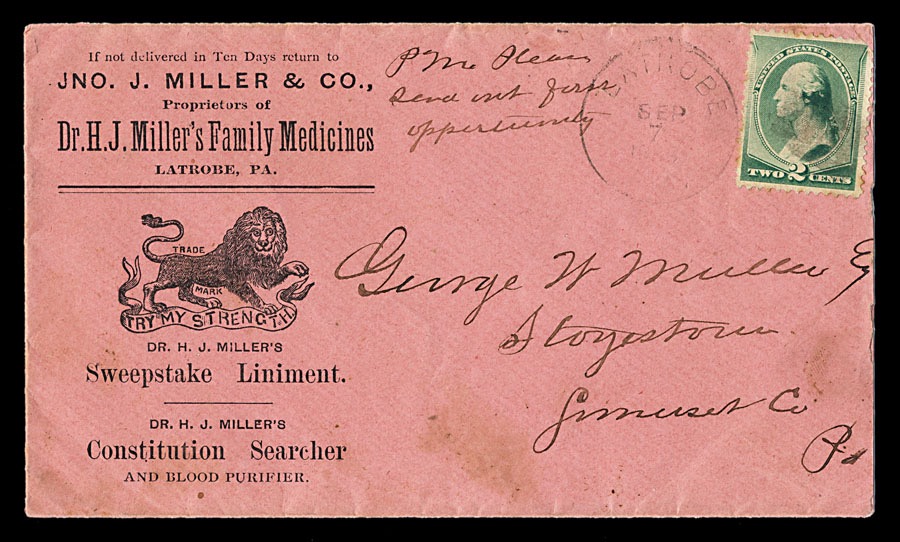 If not delivered in Ten Days return to
JNO. J. MILLER & CO.,
Proprietors of
Dr. H. J. Miller's Family Medicines
LATROBE, PA.
TRADE
MARK
TRY MY STRENGTH
DR. H. J. MILLER'S
Sweepstake Liniment.
DR. H. J. MILLER'S
Constitution Searcher
AND BLOOD PURIFIER.
P M Please
send out first
oppertunity
LATROBE
SEP
7
UNITED STATES POSTAGE
TWO 2 CENTS
George W Muller
Stoyestown
Somerset Co
Pa